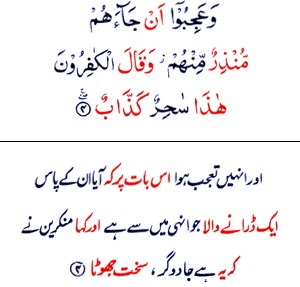 وَعَجِبُوْۤا اَنْ جَآءَهُمْ
مُّنْذِرٌ مِّنْهُمْ ؗ وَقَالَ الْكٰفِرُوْنَ
هٰذَا سٰحِرٌ كَذَّابٌ ۖۚ ﴿۴﴾
اور انہیں تعجب ہوا اس بات پر کہ آیا ان کے پاس
ایک ڈرانے والا جو انہی میں سے ہے اور کہا منکرین نے
کہ یہ ہے جادوگر ، سخت جھوٹا ﴿۴﴾